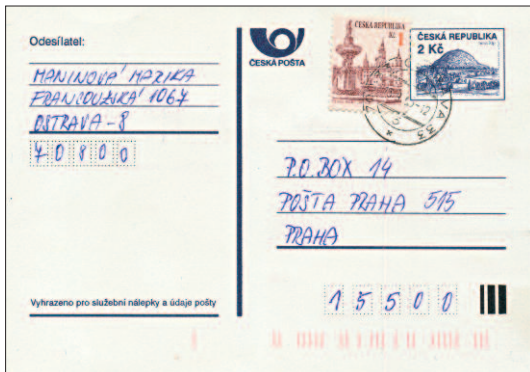 Odesílatel:
MANINOVÁ MARIKA
FRANCOUZSKÁ 1067
OSTRAVA-8
70800
Vyhrazeno pro služební nálepky a údaje pošty
ČESKÁ POŠTA
ČESKÁ REPUBLIKA
Kč 1
ČESKÁ REPUBLIKA
2 Kč
P.O.BOX 14
POŠTA PRAHA 515
PRAHA
15500